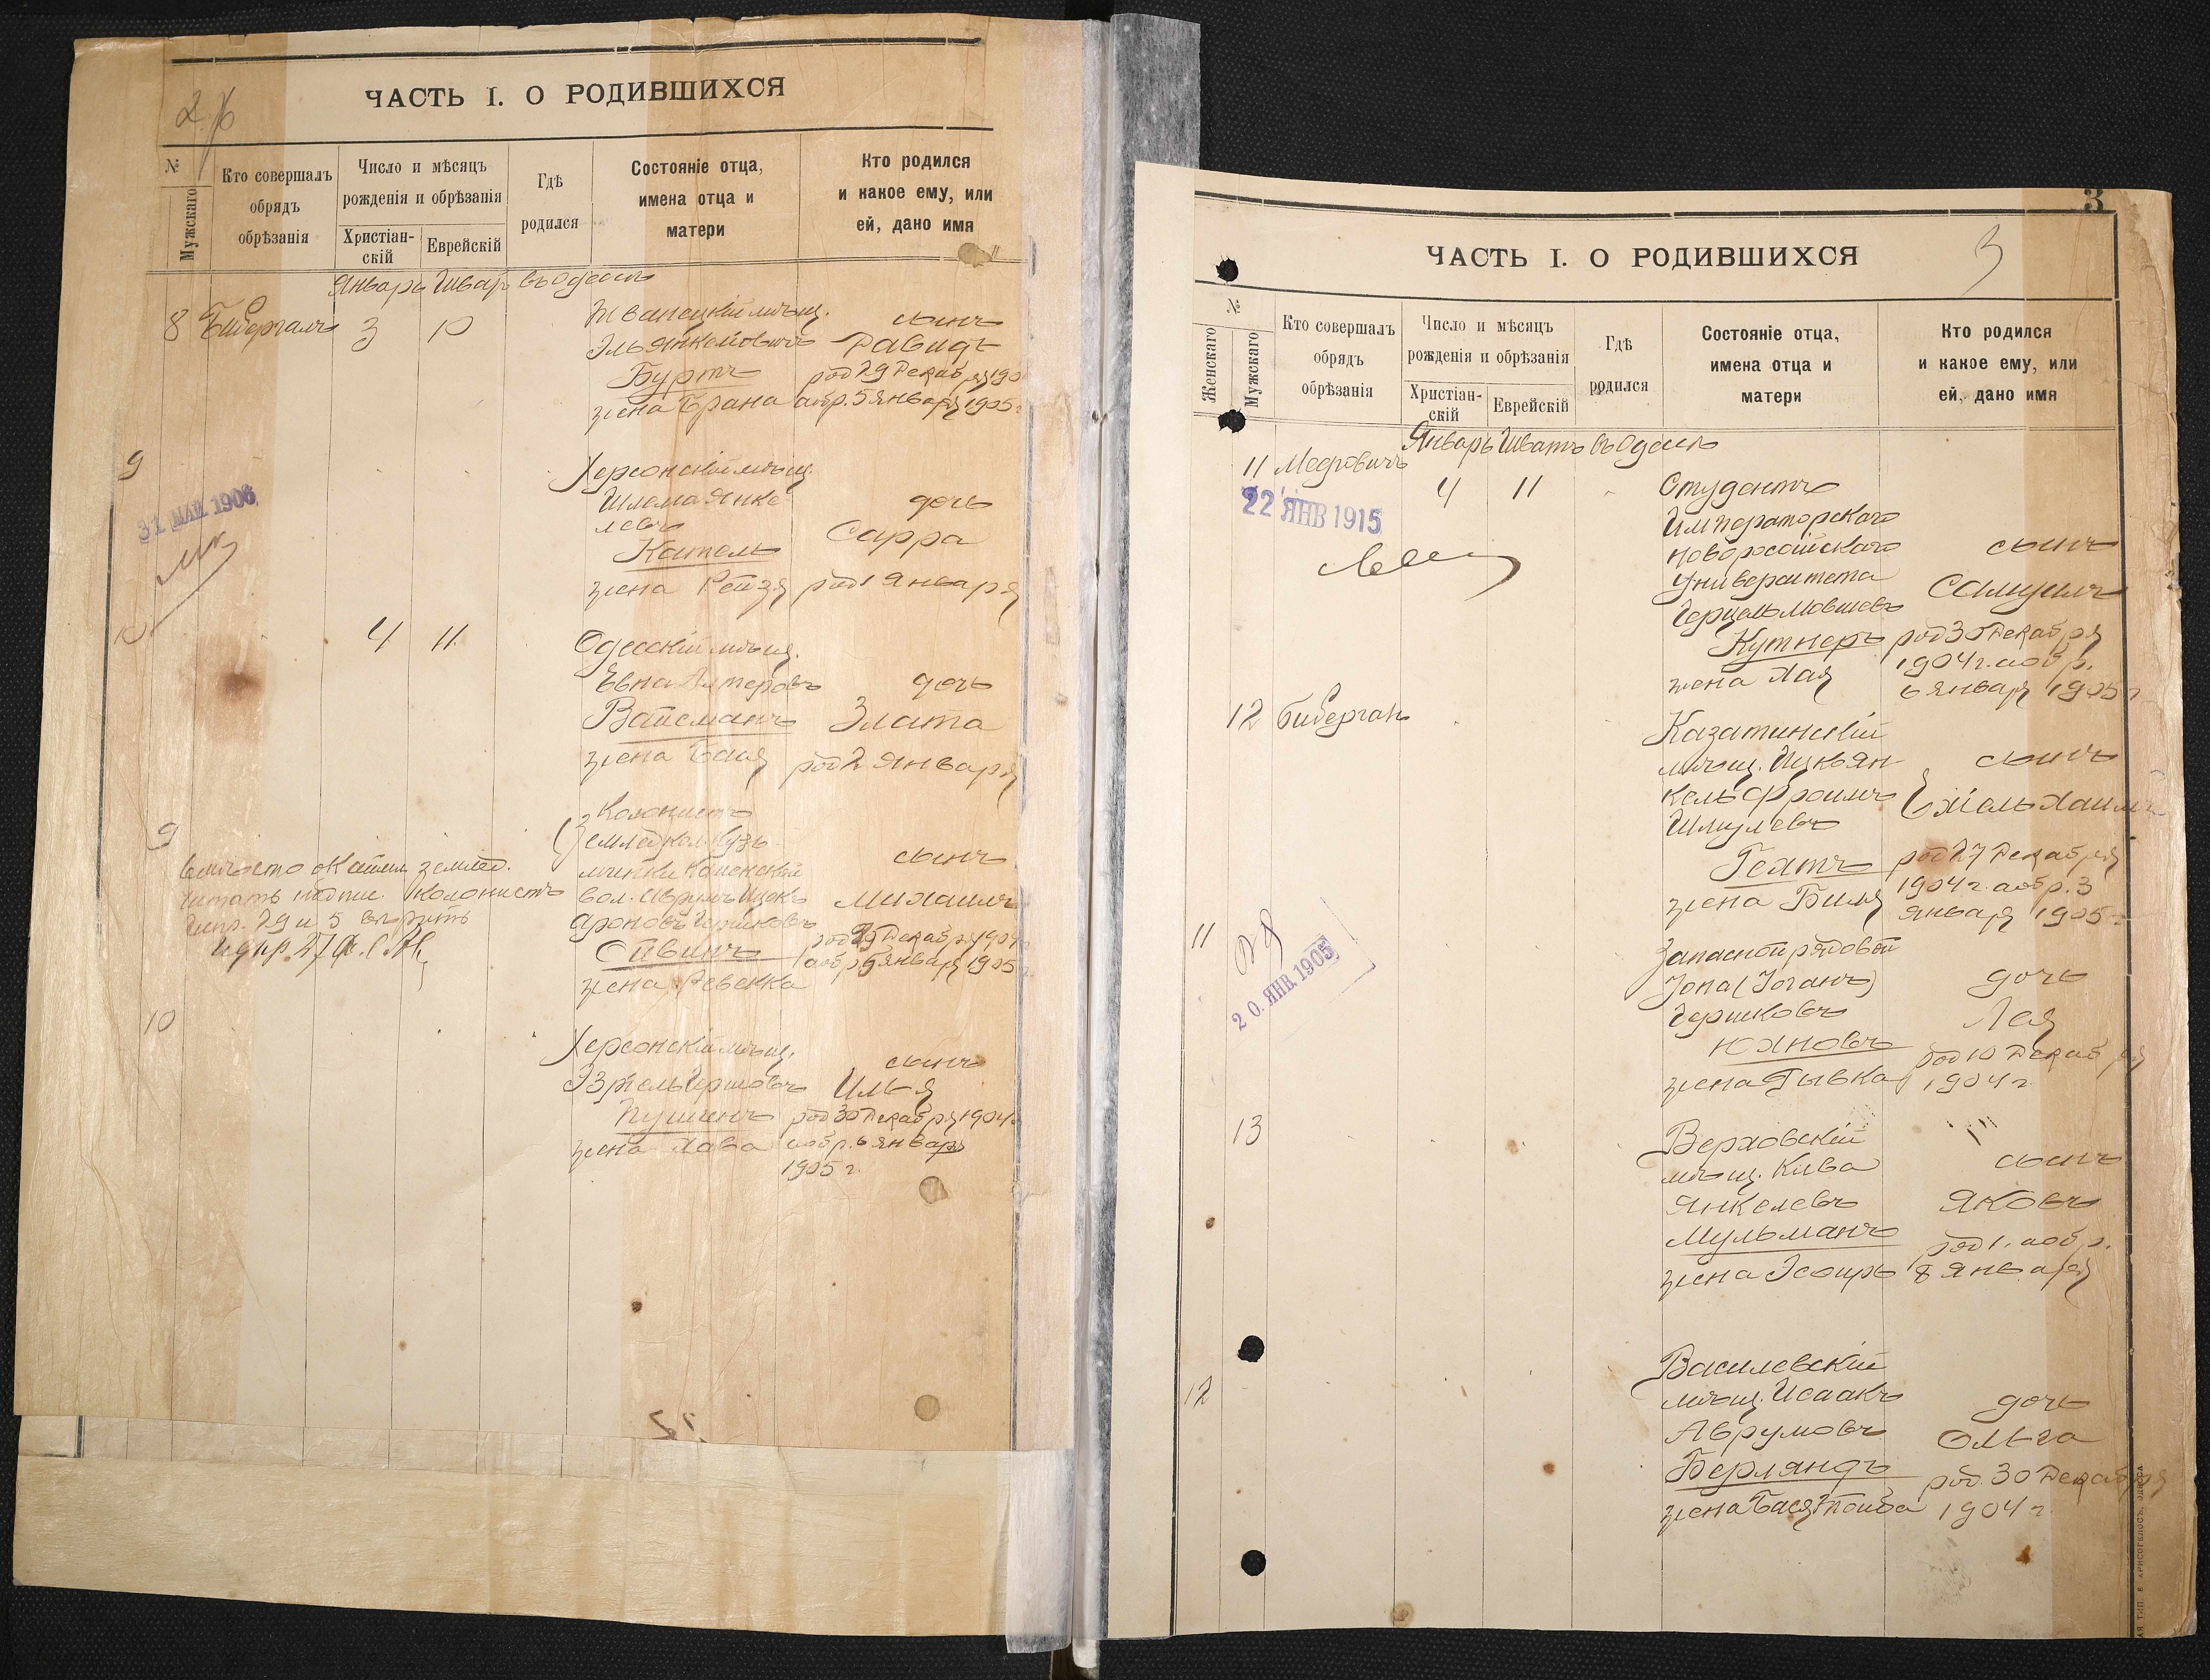 ЧАСТЬ I. О РОДИВШИХСЯ
2
№
Мужскаго
Кто совершалъ обрядъ обрѣзанія
Число и мѣсяцъ рожденія и обрѣзанія
Христіан-скій
Еврейскій
Гдѣ родился
Состояніе отца, имена отца и матери
Кто родился и какое ему, или ей, дано имя
Январь Шват въ Одессѣ
8 Бибергалъ 3 10
Жванецкій мѣщ.
Эль Янкелевичъ
Буртъ
жена Брана
сынъ
Давидъ
род 29 Декабря 190
и обр. 5 Января 1905 г
9
31 МАЙ 1906
Херсонскій мѣщ.
Шлема Янке-
левъ
Кательъ
жена Рейзя
дочь
Сарра
род 1 Января
10
4 11
Одесскій мѣщ.
Евна Алтеровъ
Вайсманъ
жена Бася
дочь
Злата
род 2 Января
9
Колонистъ
землед кол.
Каменской
вол. Аврумъ Ицекъ
Ароновъ Гершковъ
Сивинъ
жена Ревекка
сынъ
Михаилъ
род 29 Декабря 1904
и обр 5 Января 1905
вмѣсто землед.
читать надпис. колонистъ
испр. 29 и 5 вѣрить
испр. 27
10
Херсонскій мѣщ.
Эзріель Гершовъ
Пушинъ
жена Хава
сынъ
Илья
род 30 Декабря 1904 г
и обр. 6 Января
1905 г.
3
ЧАСТЬ I. О РОДИВШИХСЯ
3
№
Женскаго
Мужскаго
Кто совершалъ обрядъ обрѣзанія
Число и мѣсяцъ рожденія и обрѣзанія
Христіан-скій
Еврейскій
Гдѣ родился
Состояніе отца, имена отца и матери
Кто родился и какое ему, или ей, дано имя
Январь Шватъ въ Одессѣ
11 Меерович 4 11
22 ЯНВ 1915
Студентъ
Императорскаго
Новороссійскаго
Университета
Герцель Мовшевъ
Кутнеръ
жена Хая
сынъ
Самуилъ
род 30 Декабря
1904 г. и обр.
6 Января 1905 г
12 Биберган
Казатинскій
мѣщ. Ицко Ян-
кель Фроимъ
Шмулевъ
Гехтъ
жена Биня
сынъ
Ехіель Хаимъ
род 27 Декабря
1904 г. и обр. 3
Января 1905 г
11
20. ЯНВ. 1905
Запасной рядовой
Іона (Іоганъ)
Гершковъ
Юхновъ
жена Рывка
дочь
Лея
род 10 Декабря
1904 г
13
Верховскій
мѣщ. Кива
Янкелевъ
Мульманъ
жена Эсфирь
сынъ
Яковъ
род 1. и обр.
8 Января
12
Василевскій
мѣщ. Исаакъ
Аврумовъ
Берляндъ
жена Бася Тойба
дочь
Ольга
род. 30 Декабря
1904 г